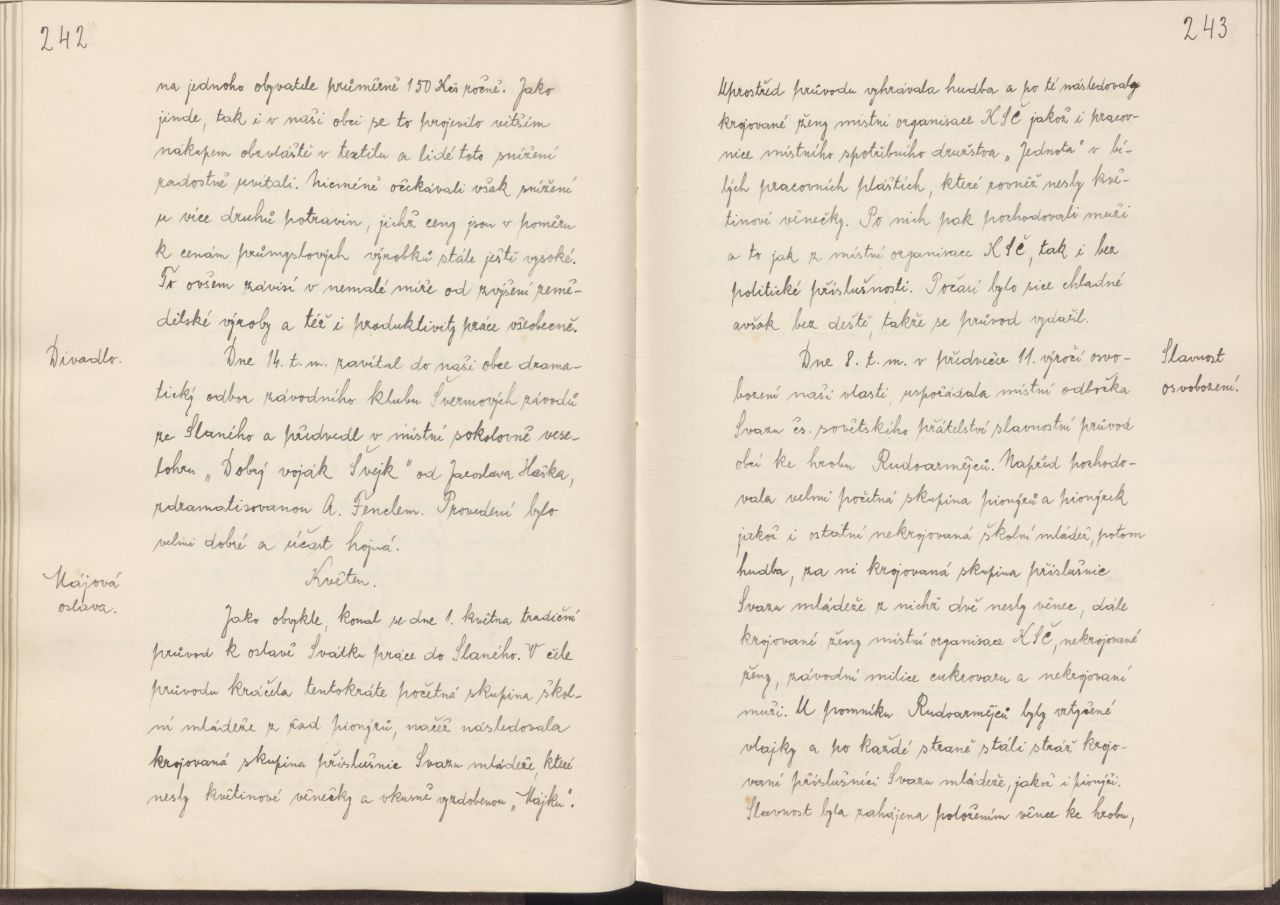 242
na jednoho obyvatele průměrně 150 Kčs ročně. Jako
jinde, tak i v naši obci se to projevilo větším
nákupem obzvláště v textilu a lidé toto snížení
radostně uvítali. Nicméně očekávali však snížení
u více druhů potravin, jichž ceny jsou v poměru
k cenám průmyslových výrobků stále ještě vysoké.
To ovšem závisí v nemalé míře od zvýšení země-
dělské výroby a též i produktivity práce všeobecně.
Divadlo.
Dne 14. t. m. zavítal do naši obce drama-
tický odbor závodního klubu Švermových závodů
ze Slaného a předvedl v místní sokolovně vese-
lohru „Dobrý voják Švejk" od Jaroslava Haška,
zdramatisovanou A. Fenclem. Provedení bylo
velmi dobré a účast hojná.
Květen.
Májová
oslava.
Jako obykle, konal se dne 1. května tradiční
průvod k oslavě Svátku práce do Slaného. V čele
průvodu kráčela tentokráte početná skupina škol-
ní mládeže z řad pionýrů, načež následovala
krojovaná skupina příslušnic Svazu mládeže, které
nesly květinové věnečky a vkusně vyzdobenou „Májku".
243
Uprostřed průvodu vyhrávala hudba a po té následovaly
krojované ženy místní organisace KSČ jakož i pracov-
nice místního spotřebního družstva „Jednota" v bí-
lých pracovních pláštích, které rovněž nesly kvě-
tinové věnečky. Po nich pak pochodovali muži
a to jak z místní organisace KSČ, tak i bez
politické příslušnosti. Počasí bylo sice chladné
avšak bez deště, takže se průvod vydařil.
Slavnost
osvobození.
Dne 8. t. m. v předvečer 11. výročí osvo-
bození naši vlasti, uspořádala místní odbočka
Svazu čs. sovětského přátelství slavnostní průvod
obcí ke hrobu Rudoarmějců. Napřed pochodo-
vala velmi početná skupina pionýrů a pionýrek
jakož i ostatní nekrojovaná školní mládež, potom
hudba, za ní krojovaná skupina příslušnic
Svazu mládeže z nichž dvě nesly věnec, dále
krojované ženy místní organisace KSČ, nekrojované
ženy, závodní milice cukrovaru a nekrojovaní
muži. U pomníku Rudoarmějců byly vztyčené
vlajky a po každé straně stáli stráž krojo-
vaní příslušníci Svazu mládeže, jakož i pionýři.
Slavnost byla zahájena položením věnce ke hrobu,